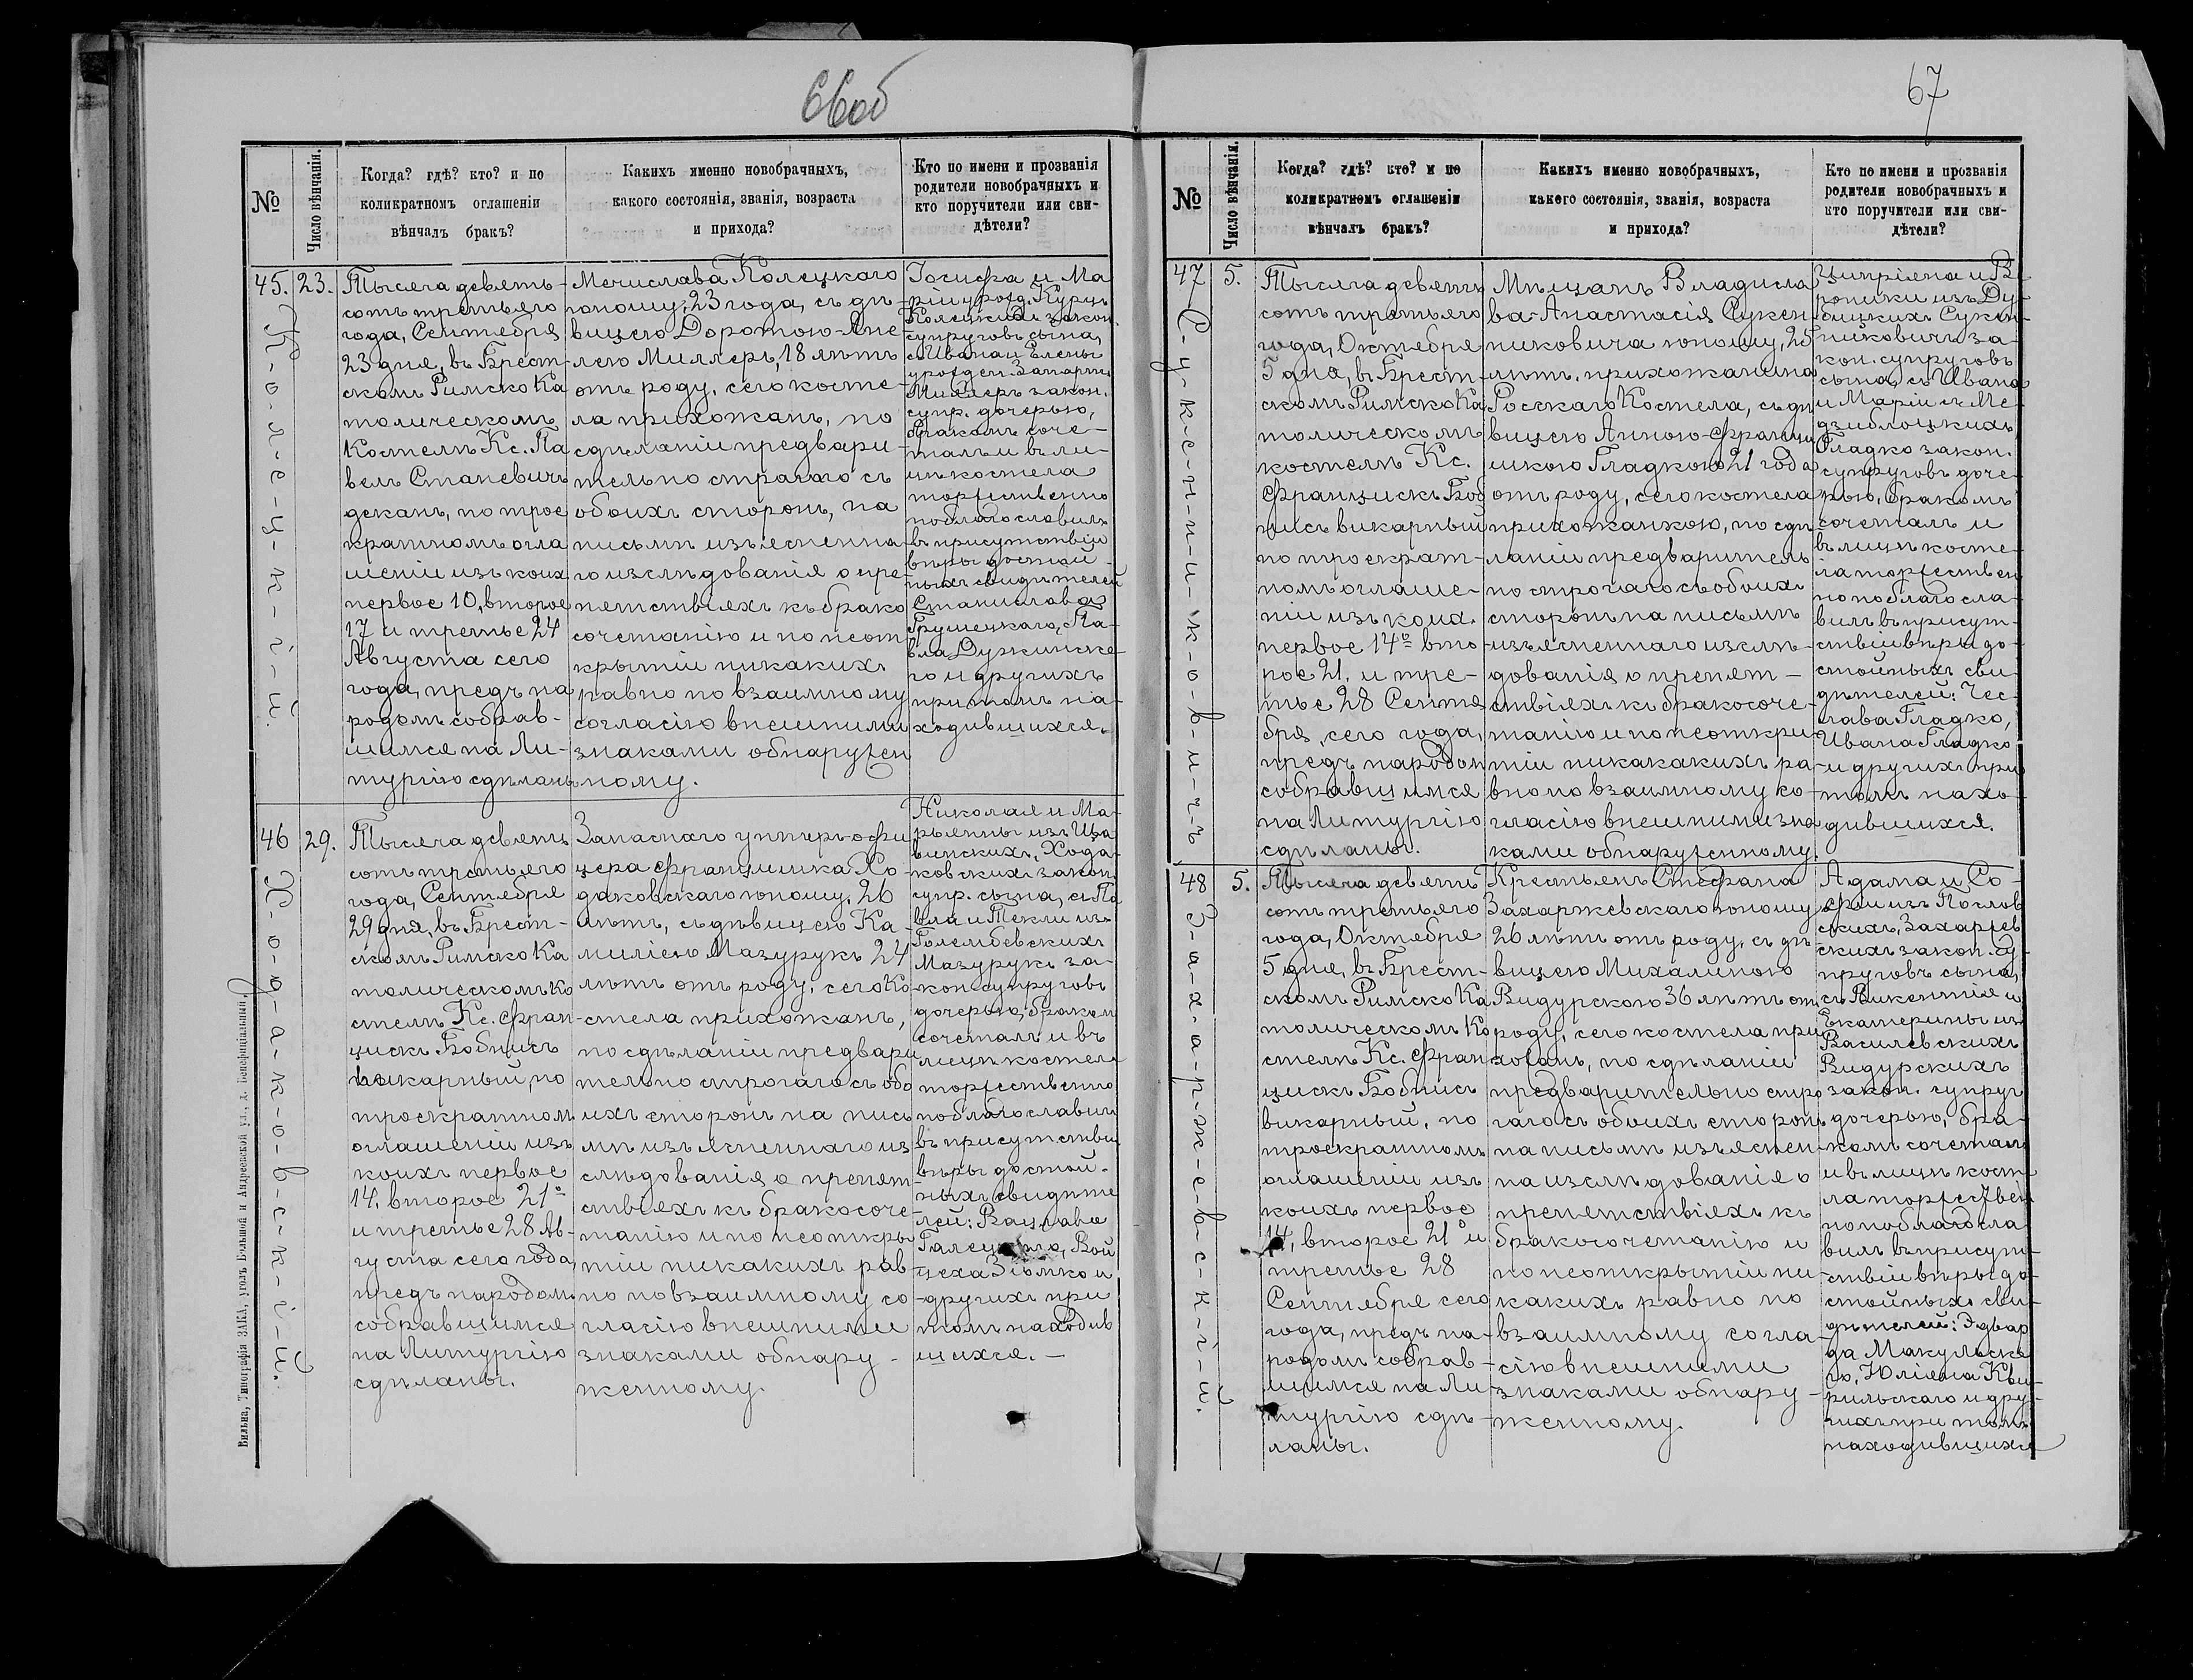 66об
№
Число вѣнчанія.
Когда? гдѣ? кто? и по
коликратномъ оглашеніи
вѣнчалъ бракъ?
Какихъ именно новобрачныхъ,
какого состоянія, званія, возраста
и прихода?
Кто по имени и прозванія
родители новобрачныхъ и
кто поручители или сви-
дѣтели?
45.
23.
К-о-л-е-ц-к-і-й.
Тысяча девять-
сотъ третьяго
года, Сентября
23 дня, въ Брест-
скомъ Римско Ка
толическомъ
Костелѣ Кс. Па
велъ Станевичъ
деканъ, по трое
кратномъ огла
шеніи изъ коих
первое 10, второе
17 и третье 24
Августа сего
года, предъ на
родомъ собрав-
шимся на Ли-
тургію сдѣланъ
Мечислава Колецкого
юношу, 23 года, съ дѣ-
вицею Доротою-Ане-
лею Миллеръ, 18 лѣтъ
отъ роду, сего косте-
ла прихожанъ, по
сдѣланіи предвари-
тельно строгаго съ
обоихъ сторонъ, на
письмѣ изъясненна-
го изслѣдованія о пре-
пятствіяхъ къ брако
сочетанію и по неот
крытіи никакихъ
равно по взаимному
согласію внешними
знаками обнаружен
ному.
Іосифа и Ма
ріи урожд. Курцъ
Колецкихъ закон.
супруговъ сына,
съ Ивана и Елены
урожден.
Миллеръ закон.
супр. дочерью,
бракомъ соче-
талъ и въ ли-
цѣ костела
торжественно
поблагословилъ
въ присутствіи
вѣры достой-
ныхъ свидѣтелей
Станислава
Грушецкаго, Па-
вла Дужинска-
го и другихъ
при томъ на-
ходившихся.
46
29.
Х-о-д-а-к-о-в-с-к-і-й.
Тысяча девять
сотъ третьяго
года, Сентября
29 дня, въ Брест-
скомъ Римско Ка
толическомъ Ко
стелѣ Кс. Фран-
цискъ Бобнисъ
викарный, по
троекратном
оглашеніи изъ
коихъ первое
14, второе 21º
и третье 28 Ав-
густа сего года
предъ народом
собравшимся
на Литургію
сдѣланы.
Запаснаго унтеръ-офи
цера Францишка Хо-
даковскаго юношу, 26
лѣтъ, съ дѣвицею Ка-
милiею Мазурукъ 24
лѣтъ отъ роду, сего Ко
стела прихожанъ,
по сдѣланіи предвари
тельно строгаго съ обо
ихъ сторон на пись
мѣ изъясненнаго из
слѣдованія о препят
ствіяхъ къ бракосоче-
танію и по неоткры
тіи никакихъ рав-
но по взаимному со
гласію внешними
знаками обнару-
женному.
Николая и Ма-
рьянны изъ
Хода
ковскихъ закон.
супр. сына, съ Па
вла и Теклы изъ
Голембевскихъ
Мазурукъ за-
кон. супруговъ
дочерью, браком
сочеталъ и въ
лицѣ костела
торжественно
поблагословил
въ присутствіи
вѣры достой-
ныхъ свидѣте
лей: Вацлава
Вой
цеха Зіомко и
другихъ при
томъ находив
шихся.-
Вильна, Типографія ЗАКА, уголъ Большой и Андреевской ул., д. Бенефиціальный.
67
№
Число вѣнчанія.
Когда? гдѣ? кто? и по
коликратномъ оглашеніи
вѣнчалъ бракъ?
Какихъ именно новобрачныхъ,
какого состоянія, званія, возраста
и прихода?
Кто по имени и прозванія
родители новобрачныхъ и
кто поручители или сви-
дѣтели?
47
5.
С-у-к-е-н-н-и-к-о-в-и-ч-ъ
Тысяча девять
сотъ третьяго
года, Октября
5 дня, въ Брест-
скомъ Римско Ка
толическомъ
костелѣ Кс.
Францискъ Боб
нисъ викарный
по троекрат-
номъ оглаше-
ніи изъ коих.
первое 14º вто-
рое 21. и тре-
тье 28 Сентя
бря, сего года,
предъ народом
собравшимся
на Литургію
сдѣланы.
Мѣщанъ Владисла
ва-Анастасія Сукен-
никовича юношу, 25
лѣт. прихожанина
Росскаго Костела, съ дѣ
вицею Анною-Франци
шкою Гладкою 21 года
отъ роду, сего костела
прихожанкою, по сдѣ
ланіи предваритель
но строгаго съ обоихъ
сторон на письмѣ
изъясненнаго изслѣ-
дованія о препят-
ствіяхъ къ бракосоче-
танію и по неоткры
тіи никакакихъ ра-
вно по взаимному со-
гласію внешними зна
ками обнаруженному.
Ципріяна и Ве
роники изъ Ду-
бицкихъ Сукен-
никовичъ за-
кон. супруговъ
сына, съ Ивана
и Маріи съ Ме-
дзиблоцкихъ
Гладко закон.
супруговъ доче-
рью, бракомъ
сочеталъ и
въ лицѣ косте-
ла торжествен
но поблагосла-
вилъ въ присут-
ствіи вѣры до-
стойныхъ сви-
дѣтелей: Чес-
лава Гладко,
Ивана Гладко
и другихъ при
томъ нахо-
дившихся.
48
5.
З-а-х-а-р-ж-е-в-с-к-і-й.
Тысяча девять
сотъ третьяго
года, Октября
5 дня, въ Брест-
скомъ Римско Ка
толическомъ Ко
стелѣ Кс. Фран
цискъ Бобнисъ
викарный, по
троекратномъ
оглашеніи изъ
коихъ первое
14, второе 21º и
третье 28
Сентября сего
года, предъ на-
родомъ собрав-
шимся на Ли-
тургію сдѣ-
ланы.
Крестьянъ Стефана
Захаржевскаго юношу
26 лѣтъ отъ роду, съ дѣ
вицею Михалиною
Видурскою 36 лѣтъ отъ
роду, сего костела при
хожанъ, по сдѣланіи
предварительно стро
гаго съ обоихъ сторонъ
на письмѣ изъяснен
на изслѣдованія о
препятствіяхъ къ
бракосочетанію и
по неоткрытіи ни-
какихъ равно по
взаимному согла-
сію внешними
знаками обнару-
женному.
Адама и Со-
фіи изъ Послов
скихъ, Захаржев
скихъ закон. су-
пруговъ сына,
съ Викентія и
Екатерины из
Василевскихъ
Видурскихъ
закон. супруг
дочерью, бра-
комъ сочетал
и въ лицѣ косте
ла торжествен
но поблагосла
вилъ въ присут-
ствіи вѣры до-
стойныхъ сви-
дѣтелей: Эдвар
да Макульска
го, Юліяна Кви-
рильскаго и дру-
гихъ при томъ
находившихся